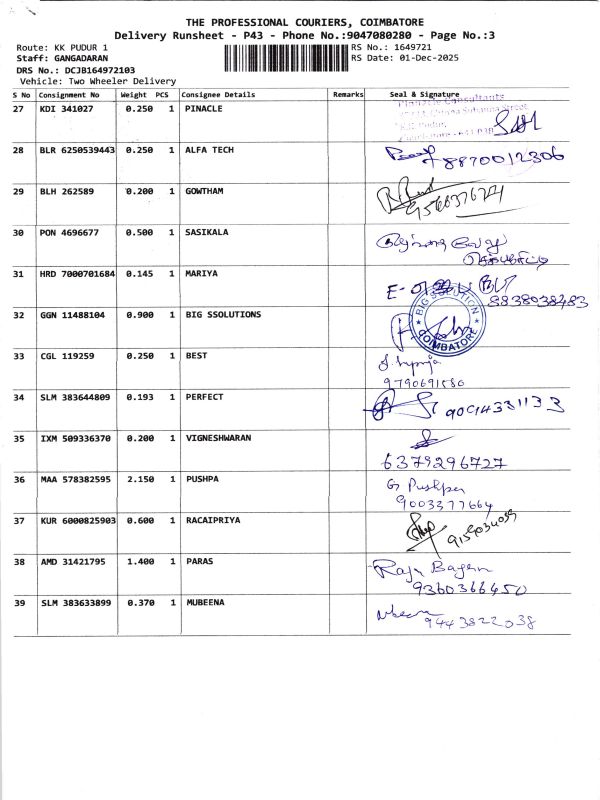 THE PROFESSIONAL COURIERS, COIMBATORE
Delivery Runsheet - P43 - Phone No.:9047080280 - Page No.:3
Route: KK PUDUR 1 RS No.: 1649721
Staff: GANGADARAN RS Date: 01-Dec-2025
DRS No.: DCJB164972103
Vehicle: Two Wheeler Delivery
S No Consignment No Weight PCS Consignee Details Remarks Seal & Signature
27 KDI 341027 0.250 1 PINACLE
Pinnacle Consultants
28 BLR 6250539443 0.250 1 ALFA TECH
8870012306
29 BLH 262589 0.200 1 GOWTHAM
30 PON 4696677 0.500 1 SASIKALA
31 HRD 7000701684 0.145 1 MARIYA
8838038483
32 GGN 11488104 0.900 1 BIG SSOLUTIONS
BIG SOLUTION
COIMBATORE
33 CGL 119259 0.250 1 BEST
9790691580
34 SLM 383644809 0.193 1 PERFECT
35 IXM 509336370 0.200 1 VIGNESHWARAN
6379296727
36 MAA 578382595 2.150 1 PUSHPA
G Pushpa
9003377664
37 KUR 6000825903 0.600 1 RACAIPRIYA
9159034039
38 AMD 31421795 1.400 1 PARAS
Raja Bagan
9360366450
39 SLM 383633899 0.370 1 MUBEENA
9443822038